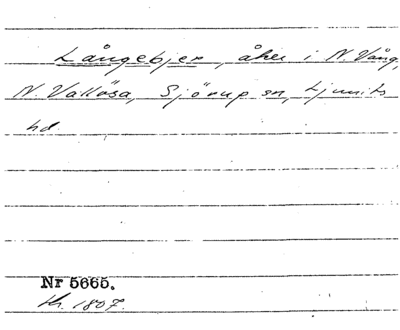 Långebjer, åker i N. Vång,
N. Vallösa, Sjörup sn, Ljunits
hd.
Nr 5665.
1807.